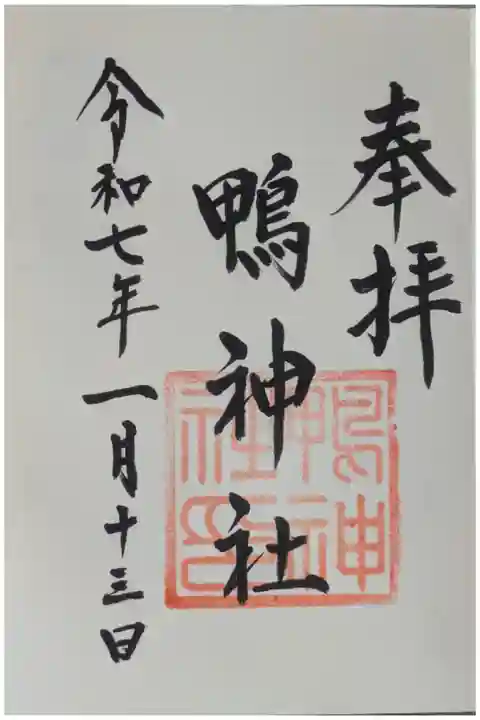 奉拝
鴨神社
令和七年一月十三日
鴨神
社印